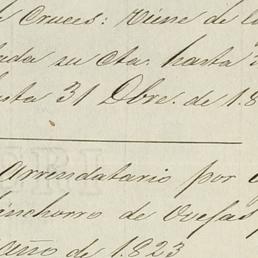 Cruces: Viene de la
su cta. hasta
31 Dbre. de 1.8
Arrendatario por
chinchorro de Ovejas
año de 1.823